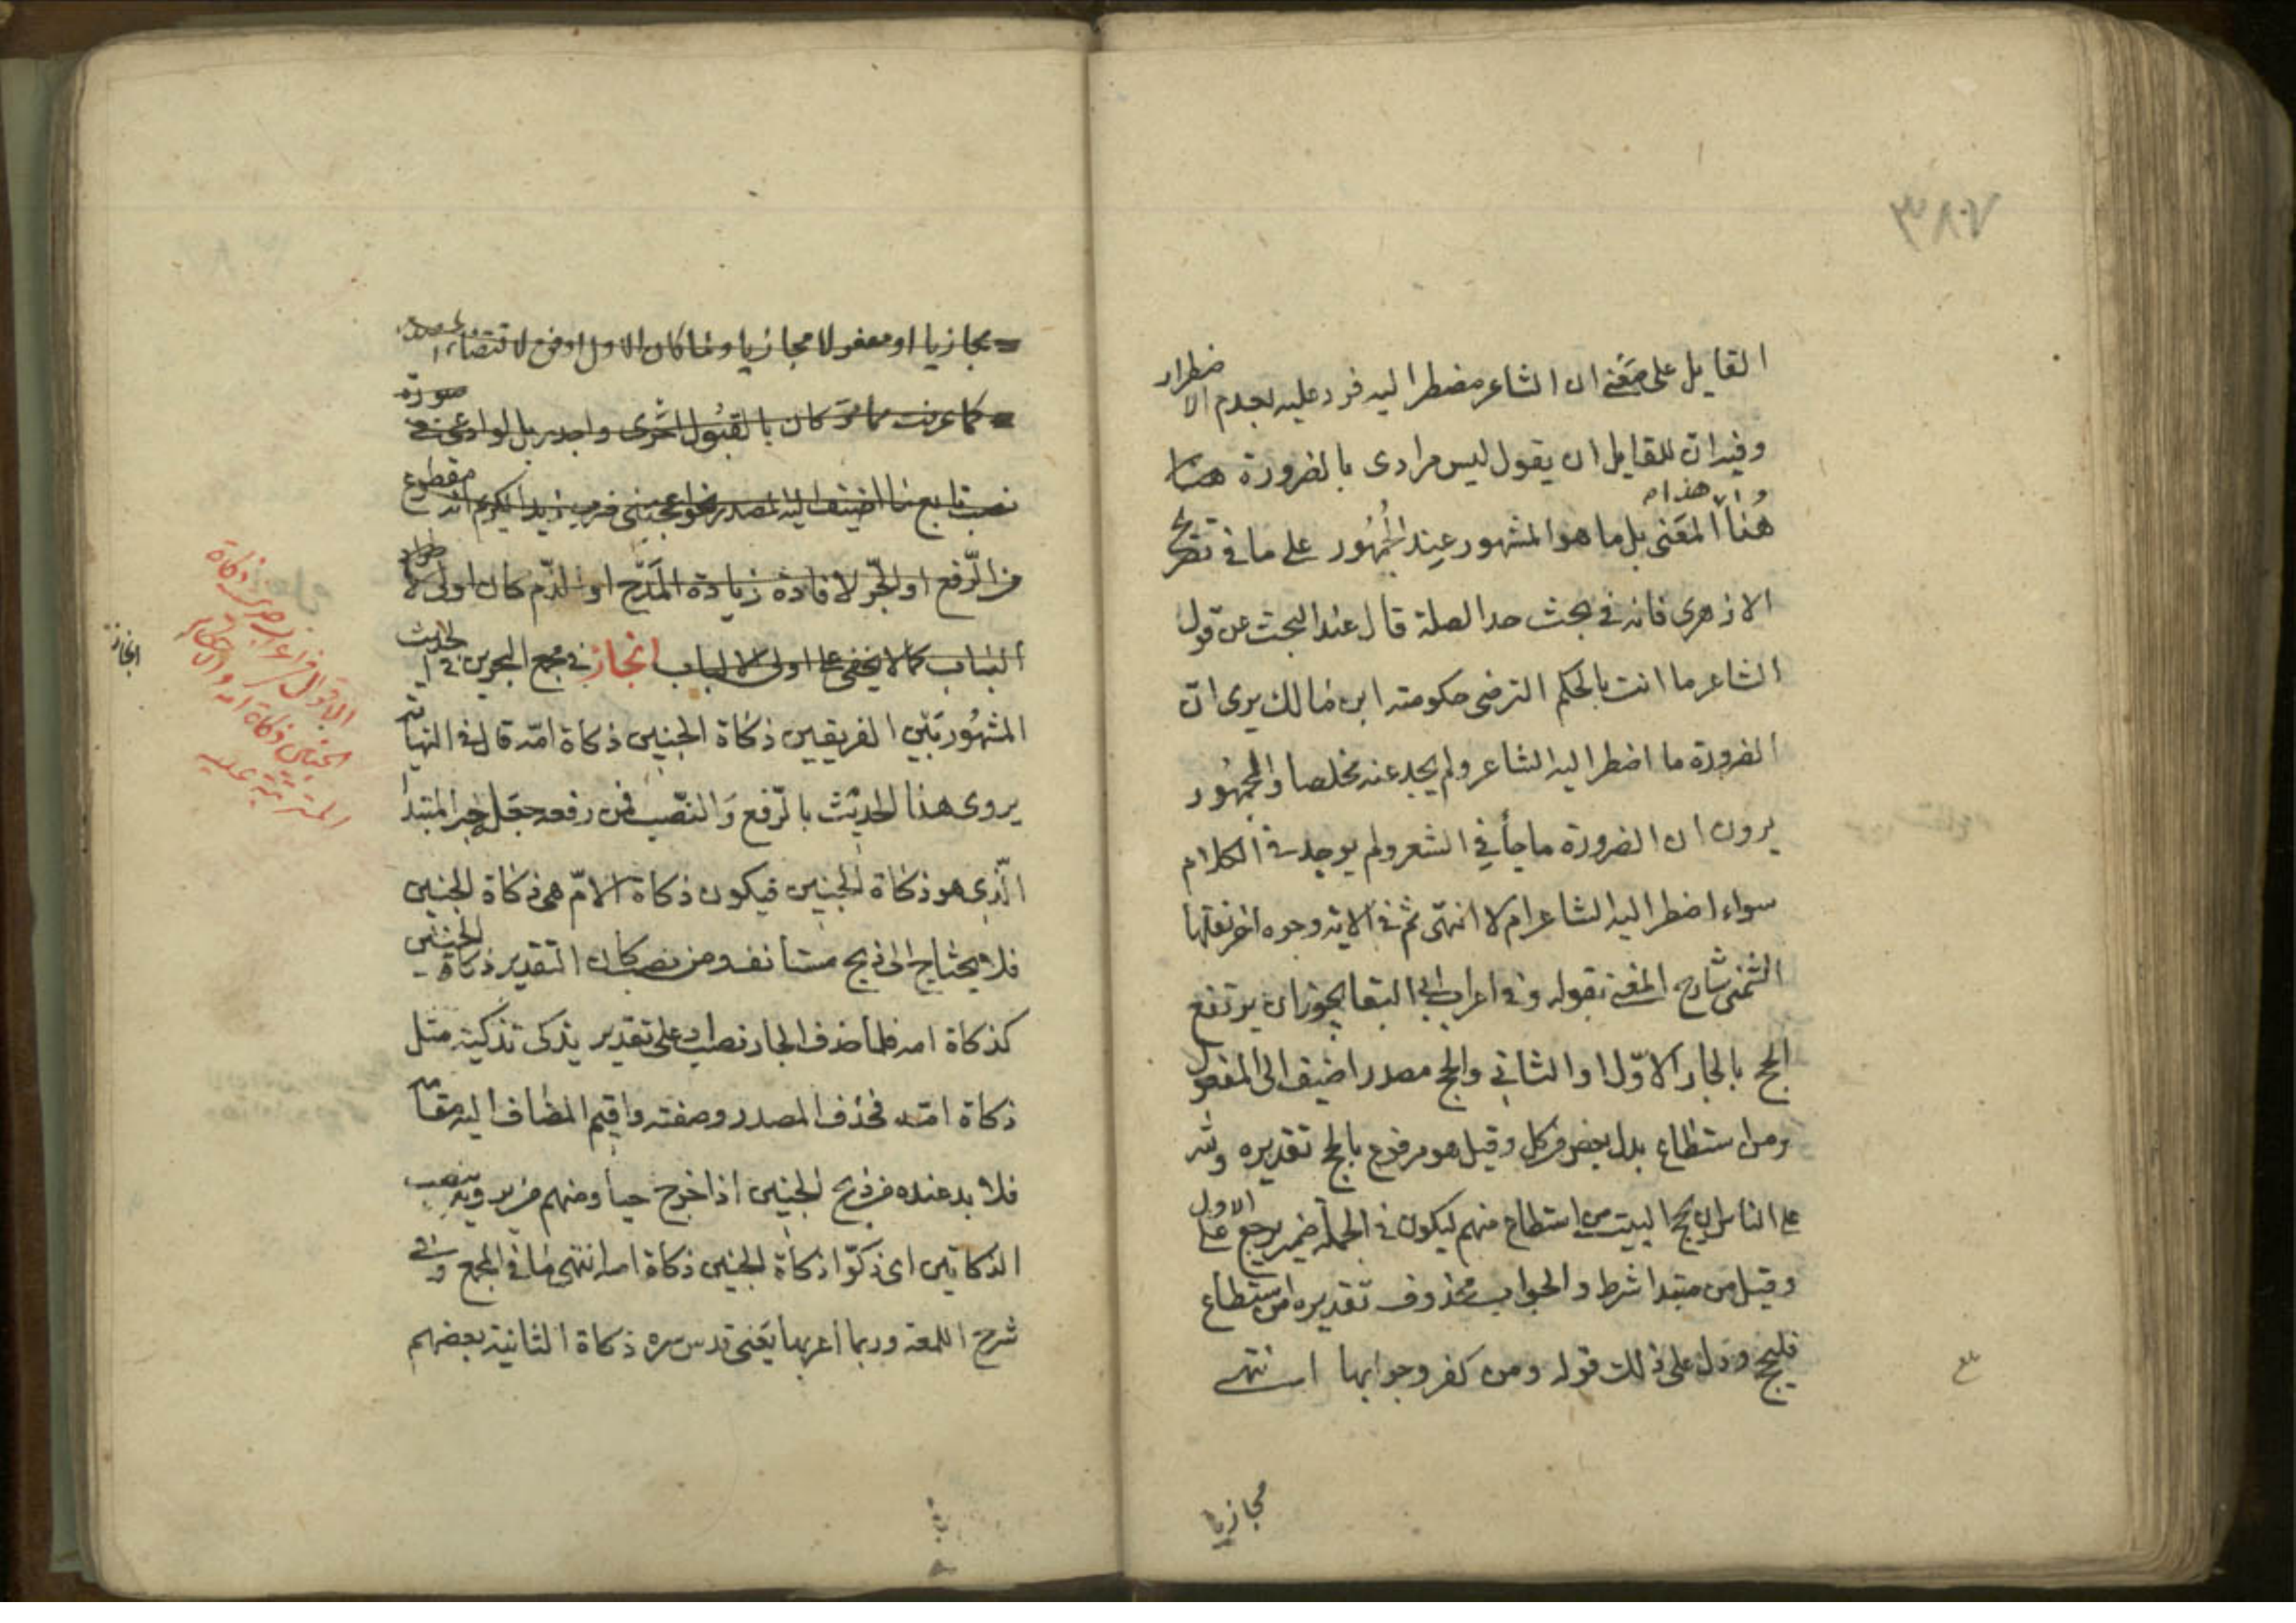 ٣٨٧
القايل على معنى ان الشاعر مضطر اليه فرد عليه بعدم الاضطرار
وفيه ان للقايل ان يقول ليس مرادى بالضرورة هنا
هذا المعنى بل ما هو المشهور عند الجمهور على ما فى تصريح
الازهرى فانه فى بحث حد الصلة قال عند البحث عن قول
الشاعر ما انت بالحكم الترضى حكومته ابن مالك يرى ان
الضرورة ما اضطر اليه الشاعر ولم يجد عنه مخلصا والجمهور
يرون ان الضرورة ما جأ في الشعر ولم يوجد فى الكلام
سواء اضطر اليه الشاعر ام لا انتهى ثم فى الاية وجوه اخر نقلها
الشمنى شارح المغنى بقوله وفى اعراب ابى البقا يجوز ان يرتفع
الحج بالجار الاوّل او الثانى والحج مصدر اضيف الى المفعول
ومن استطاع بدل بعض من كل وقيل هو مرفوع بالحج تقديره ولله
على الناس ان يحج البيت من استطاع منهم ليكون فى الجملة ضمير يرجع على الاول
وقيل من مبتدا شرط والجواب محذوف تقديره من استطاع
فليحج ودل على ذلك قوله ومن كفر وجوابها انتهى
مجازيا
مجازيا او مفعولا مجازيا ولما كان الاول اوضح لاقتضاء
كما عرفت مما مر كان بالقبول احرى واجدر بل لو ادعى فى صورة
نصب تابع ما اضيف اليه المصدر نحو اعجبنى ضرب زيد الكريم انه مقطوع
من الرّفع او الجّر لافادة زيادة المدح او الذّم كان اولى
الباب كما لا يخفى على اولى الالباب انجاز فى مجمع البحرين فى الحديث
المشهور بين الفريقين ذكاة الجنين ذكاة امّه قال فى النهاية
يروى هذا الحديث بالرّفع والنّصب فمن رفعه جعل خبر المبتدا
الّذى هو ذكاة الجنين فيكون ذكاة الامّ هى ذكاة الجنين
فلا يحتاج الى ذبح مستانف ومن نصب كان التقدير ذكاة الجنين
كذكاة امه فلما حذف الجار نصب او على تقدير يذكى تذكية مثل
ذكاة امّه فحذف المصدر وصفته واقيم المضاف اليه مقامه
فلا بد عنده من ذبح الجنين اذا خرج حيا ومنهم من يرويه بنصب
الذكاتين اى ذكّوا ذكاة الجنين ذكاة امه انتهى ما فى المجمع وفى
شرح اللمعة وربما اعربها يعنى قدس سره ذكاة الثانية بعضهم
انجاز
الاقوال فى اعراب حديث ذكاة
الجنين ذكاة امه والاحكام
المترتبة عليه